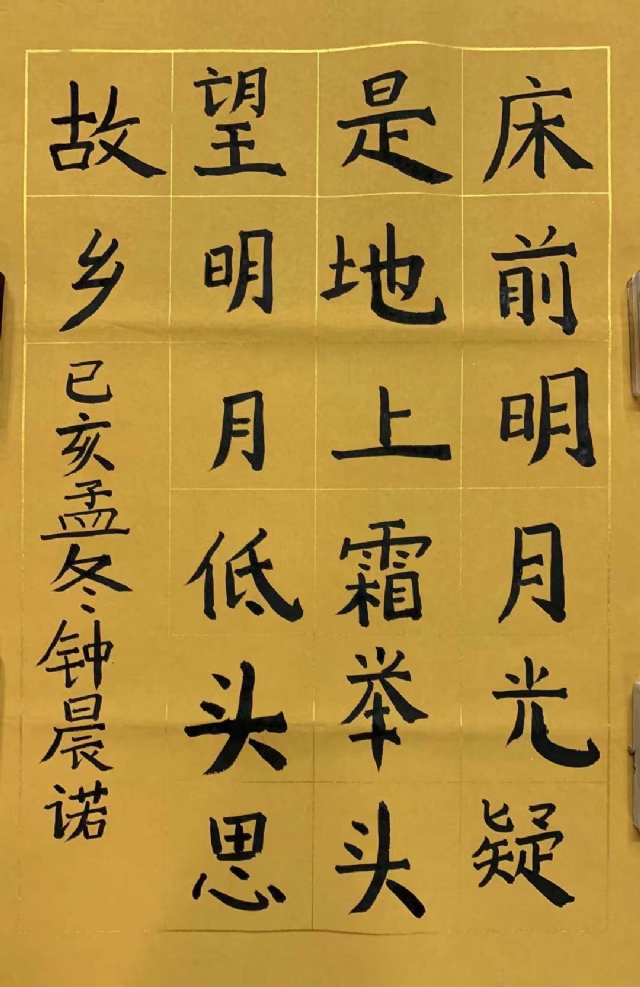 床前明月光疑
是地上霜举头
望明月低头思
故乡
已亥孟冬钟晨诺